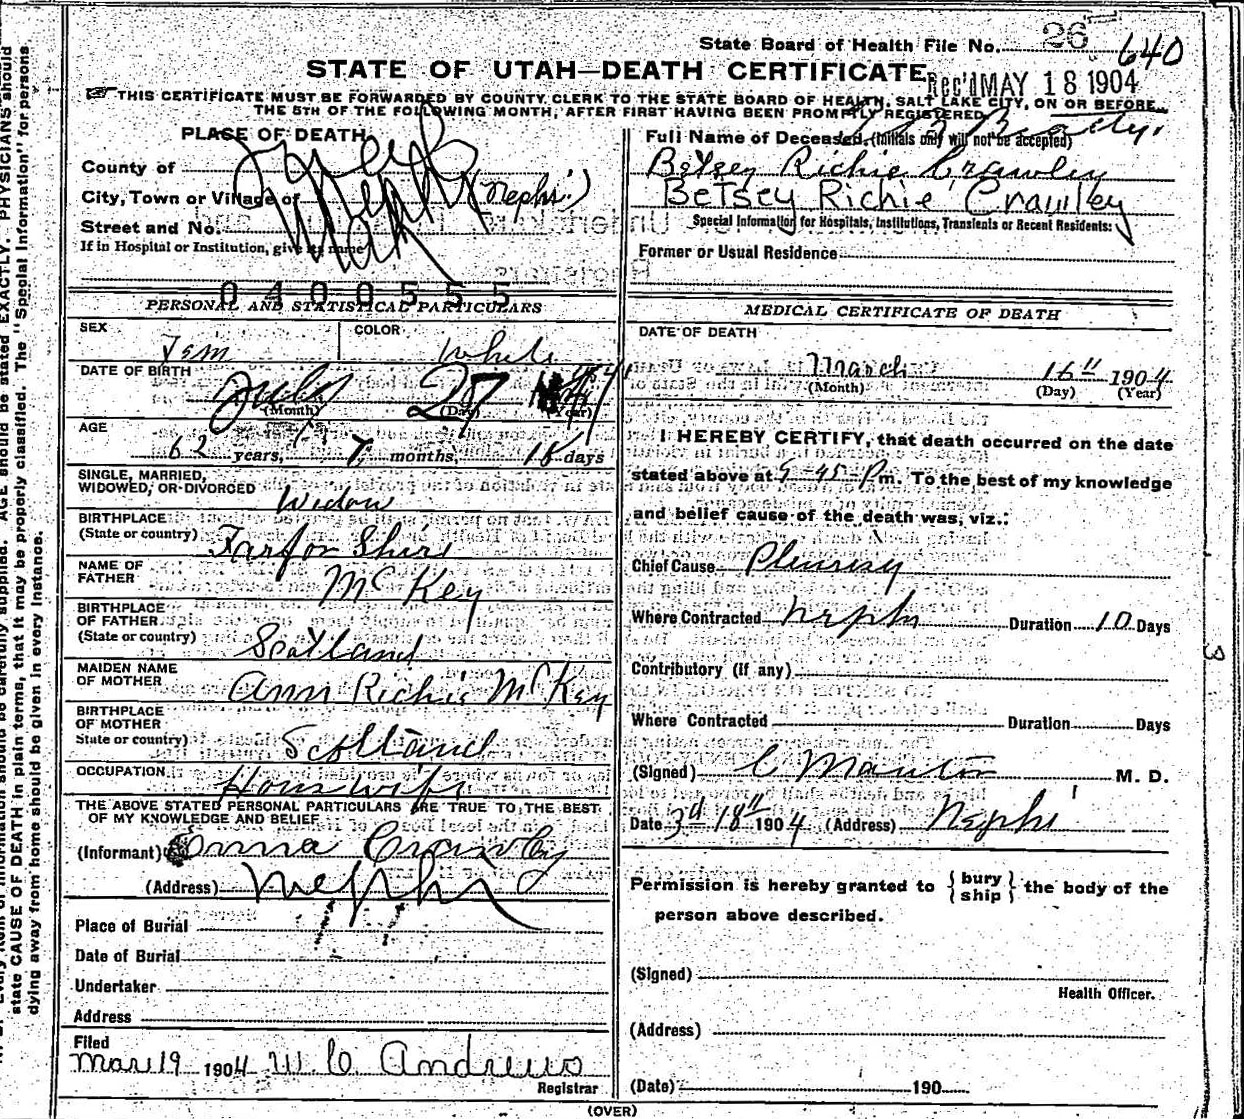 State Board of Health File No. 26 640
STATE OF UTAH—DEATH CERTIFICATE
Rec'd MAY 18 1904
THIS CERTIFICATE MUST BE FORWARDED BY COUNTY CLERK TO THE STATE BOARD OF HEALTH, SALT LAKE CITY, ON OR BEFORE
THE 5TH OF THE FOLLOWING MONTH, AFTER FIRST HAVING BEEN PROMPTLY REGISTERED
PLACE OF DEATH
County of
City, Town or Village of (Nephi)
Street and No.
If in Hospital or Institution, give its name
0400555
Full Name of Deceased, (Initials only will not be accepted)
Betsey Richie Crawley
Betsey Richie Crawley
Special Information for Hospitals, Institutions, Transients or Recent Residents:
Former or Usual Residence
PERSONAL AND STATISTICAL PARTICULARS
SEX Fem COLOR White
DATE OF BIRTH July 27
(Month) (Day) (Year)
AGE
62 years, 7 months, 18 days
SINGLE, MARRIED,
WIDOWED, OR DIVORCED Widow
BIRTHPLACE
(State or country) Farfor Shire
NAME OF
FATHER McKey
BIRTHPLACE
OF FATHER
(State or country) Scotland
MAIDEN NAME
OF MOTHER Ann Richie McKey
BIRTHPLACE
OF MOTHER
State or country) Scotland
OCCUPATION Housewife
THE ABOVE STATED PERSONAL PARTICULARS ARE TRUE TO THE BEST
OF MY KNOWLEDGE AND BELIEF
(Informant) Emma Crawley
(Address) Nephi
Place of Burial
Date of Burial
Undertaker
Address
Filed
Mar 19 1904 W. C. Andrews
Registrar
MEDICAL CERTIFICATE OF DEATH
DATE OF DEATH
March 16" 1904
(Month) (Day) (Year)
I HEREBY CERTIFY, that death occurred on the date
stated above at 9-45 P m. To the best of my knowledge
and belief cause of the death was, viz.:
Chief Cause Pleurisy
Where Contracted Nephi Duration 10 Days
Contributory (if any)
Where Contracted Duration Days
(Signed) M. D.
Date 3" 18" 1904 (Address) Nephi
Permission is hereby granted to { bury
ship } the body of the
person above described.
(Signed)
Health Officer.
(Address)
(Date) 190
(OVER)
state CAUSE OF DEATH in plain terms, that it may be properly classified. The "Special Information" for persons
dying away from home should be given in every instance.